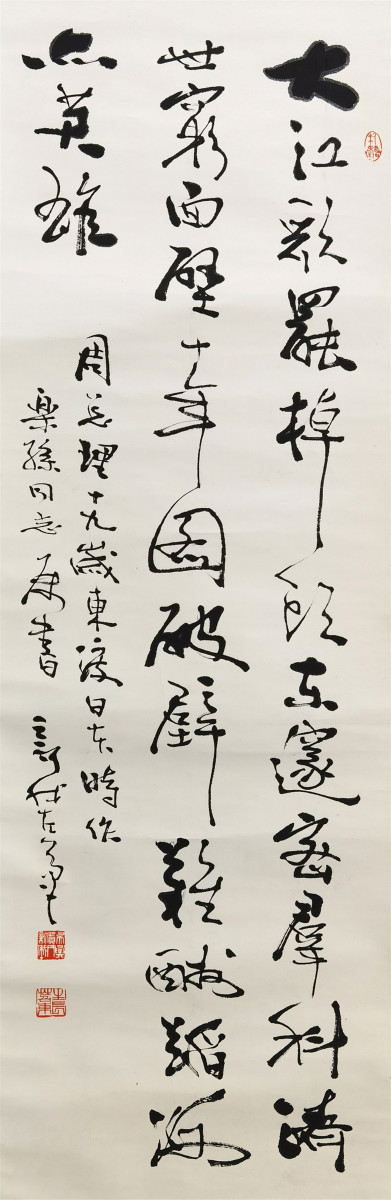 大江歌罷掉頭東邃密羣科濟
世窮面壁十年圖破壁難酬蹈海
亦英雄
周总理十九歲東渡日本時作
楽孫同志属書 新我左笔